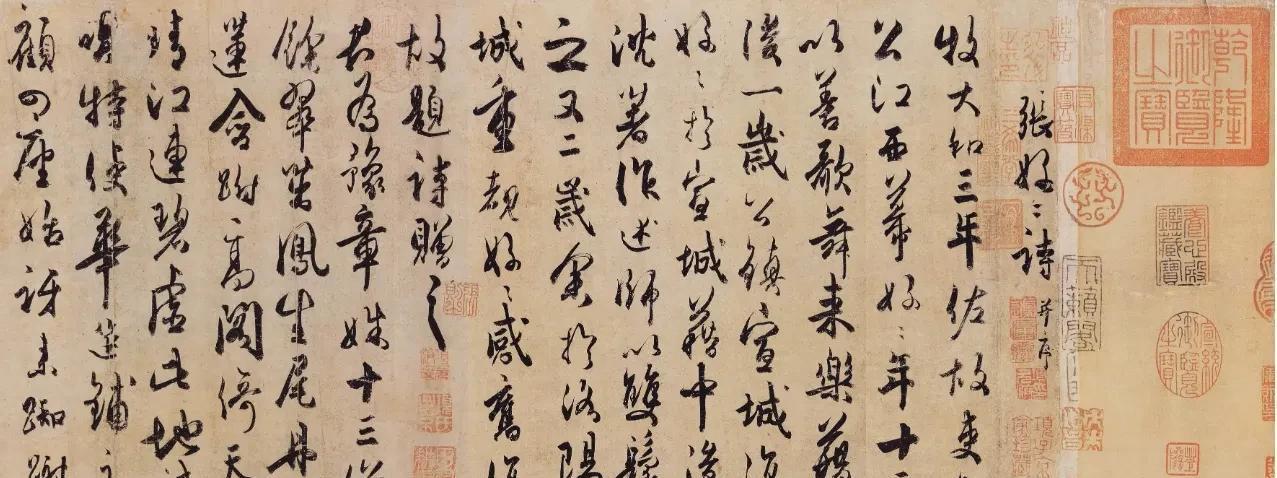 乾隆御覽之寶
養心殿鑑藏寶
宣統御覽之寶
天籟閣
張好〻詩 并序
牧大和三年佐故吏
公江西幕好〻年十三
以善歌舞來樂籍
後一歲公鎮宣城復
好〻於宣城籍中後
沈著作述師以雙鬟
之又二歲余於洛陽
城重覩好〻感舊傷
故題詩贈之
君為豫章姝十三
餘翠茁鳳生尾丹
蓮含跗高閣倚天
晴江連碧虛此地
喚特使華筵鋪
顧四座始訝來踟蹰